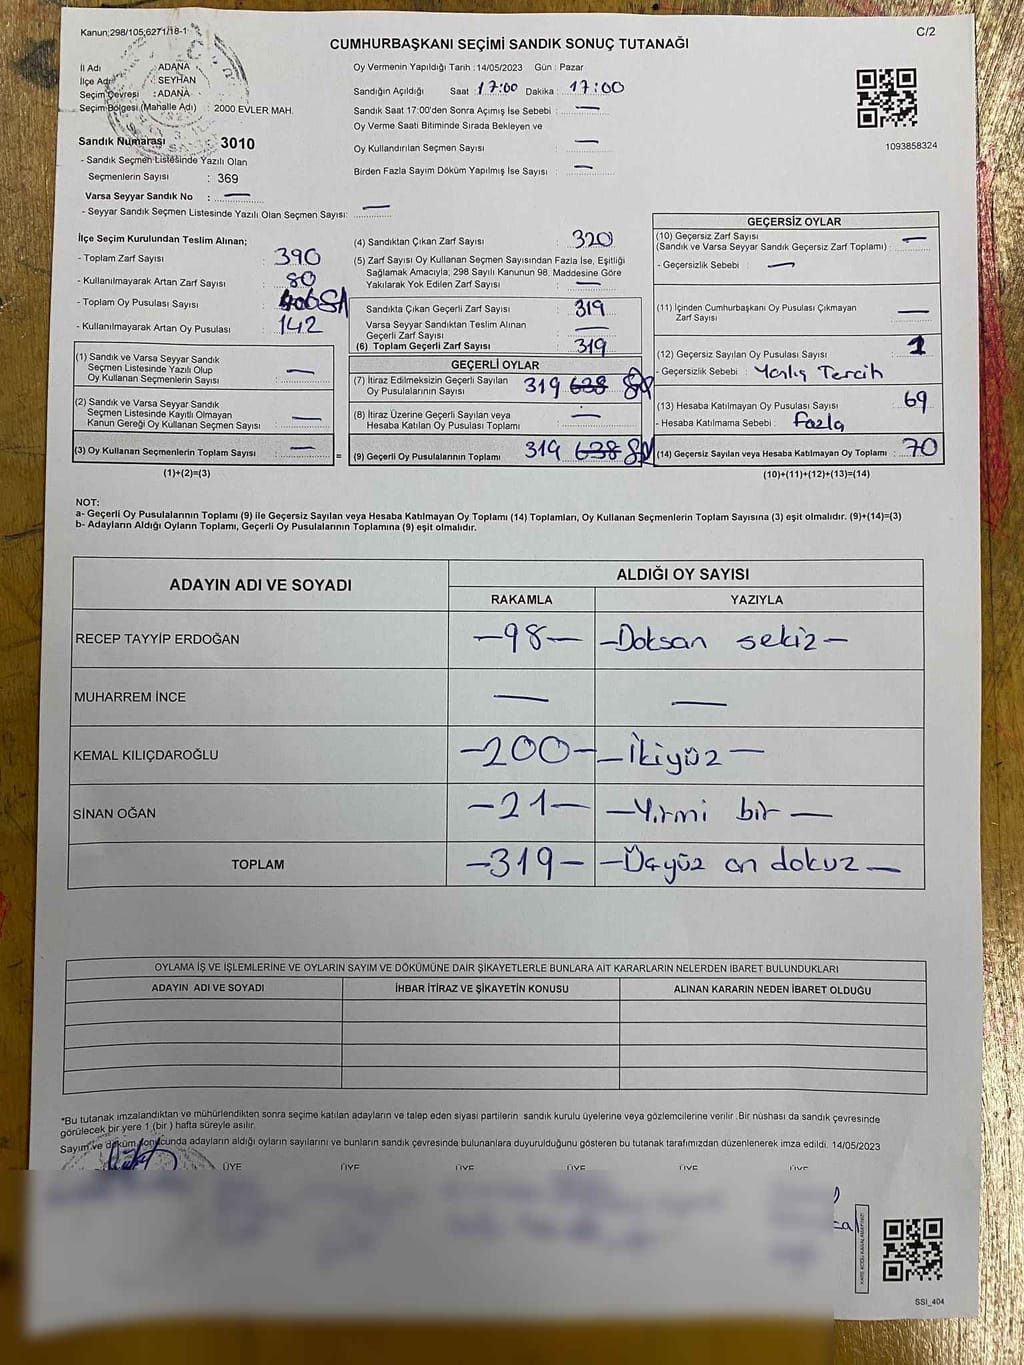 Kanun;298/105;6271/18-1
C/2
CUMHURBAŞKANI SEÇİMİ SANDIK SONUÇ TUTANAĞI
İl Adı : ADANA
İlçe Adı : SEYHAN
Seçim Çevresi : ADANA
Seçim Bölgesi (Mahalle Adı) : 2000 EVLER MAH.
Sandık Numarası : 3010
- Sandık Seçmen Listesinde Yazılı Olan
Seçmenlerin Sayısı : 369
Varsa Seyyar Sandık No : —
- Seyyar Sandık Seçmen Listesinde Yazılı Olan Seçmen Sayısı: —
Oy Vermenin Yapıldığı Tarih : 14/05/2023 Gün : Pazar
Sandığın Açıldığı Saat 17:00 Dakika : 17:00
Sandık Saat 17:00'den Sonra Açımış İse Sebebi : —
Oy Verme Saati Bitiminde Sırada Bekleyen ve
Oy Kullandırılan Seçmen Sayısı : —
Birden Fazla Sayım Döküm Yapılmış İse Sayısı : —
1093858324
İlçe Seçim Kurulundan Teslim Alınan;
- Toplam Zarf Sayısı : 390
- Kullanılmayarak Artan Zarf Sayısı : 80
- Toplam Oy Pusulası Sayısı :
- Kullanılmayarak Artan Oy Pusulası : 142
(1) Sandık ve Varsa Seyyar Sandık
Seçmen Listesinde Yazılı Olup
Oy Kullanan Seçmenlerin Sayısı : —
(2) Sandık ve Varsa Seyyar Sandık
Seçmen Listesinde Kayıtlı Olmayan
Kanun Gereği Oy Kullanan Seçmen Sayısı : —
(3) Oy Kullanan Seçmenlerin Toplam Sayısı : — =
(1)+(2)=(3)
(4) Sandıktan Çıkan Zarf Sayısı : 320
(5) Zarf Sayısı Oy Kullanan Seçmen Sayısından Fazla İse, Eşitliği
Sağlamak Amacıyla; 298 Sayılı Kanunun 98. Maddesine Göre
Yakılarak Yok Edilen Zarf Sayısı : —
Sandıkta Çıkan Geçerli Zarf Sayısı : 319
Varsa Seyyar Sandıktan Teslim Alınan
Geçerli Zarf Sayısı : —
(6) Toplam Geçerli Zarf Sayısı : 319
GEÇERLİ OYLAR
(7) İtiraz Edilmeksizin Geçerli Sayılan
Oy Pusulalarının Sayısı : 319 638
(8) İtiraz Üzerine Geçerli Sayılan veya
Hesaba Katılan Oy Pusulası Toplamı : —
(9) Geçerli Oy Pusulalarının Toplamı 319 638
GEÇERSİZ OYLAR
(10) Geçersiz Zarf Sayısı
(Sandık ve Varsa Seyyar Sandık Geçersiz Zarf Toplamı) : —
- Geçersizlik Sebebi : —
(11) İçinden Cumhurbaşkanı Oy Pusulası Çıkmayan
Zarf Sayısı : —
(12) Geçersiz Sayılan Oy Pusulası Sayısı : 1
- Geçersizlik Sebebi : Yanlış Tercih
(13) Hesaba Katılmayan Oy Pusulası Sayısı : 69
- Hesaba Katılmama Sebebi : fazla
(14) Geçersiz Sayılan veya Hesaba Katılmayan Oy Toplamı : 70
(10)+(11)+(12)+(13)=(14)
NOT:
a- Geçerli Oy Pusulalarının Toplamı (9) ile Geçersiz Sayılan veya Hesaba Katılmayan Oy Toplamı (14) Toplamları, Oy Kullanan Seçmenlerin Toplam Sayısına (3) eşit olmalıdır. (9)+(14)=(3)
b- Adayların Aldığı Oyların Toplamı, Geçerli Oy Pusulalarının Toplamına (9) eşit olmalıdır.
ADAYIN ADI VE SOYADI
ALDIĞI OY SAYISI
RAKAMLA YAZIYLA
RECEP TAYYİP ERDOĞAN —98— —Doksan sekiz—
MUHARREM İNCE — —
KEMAL KILIÇDAROĞLU —200— —İkiyüz—
SİNAN OĞAN —21— —Yirmi bir—
TOPLAM —319— —Üçyüz on dokuz—
OYLAMA İŞ VE İŞLEMLERİNE VE OYLARIN SAYIM VE DÖKÜMÜNE DAİR ŞİKAYETLERLE BUNLARA AİT KARARLARIN NELERDEN İBARET BULUNDUKLARI
ADAYIN ADI VE SOYADI İHBAR İTİRAZ VE ŞİKAYETİN KONUSU ALINAN KARARIN NEDEN İBARET OLDUĞU
*Bu tutanak imzalandıktan ve mühürlendikten sonra seçime katılan adayların ve talep eden siyasi partilerin sandık kurulu üyelerine veya gözlemcilerine verilir .Bir nüshası da sandık çevresinde
görülecek bir yere 1 (bir ) hafta süreyle asılır.
Sayım ve döküm sonucunda adayların aldığı oyların sayılarını ve bunların sandık çevresinde bulunanlara duyurulduğunu gösteren bu tutanak tarafımızdan düzenlenerek imza edildi. 14/05/2023
ÜYE ÜYE ÜYE ÜYE ÜYE ÜYE
SSI_404